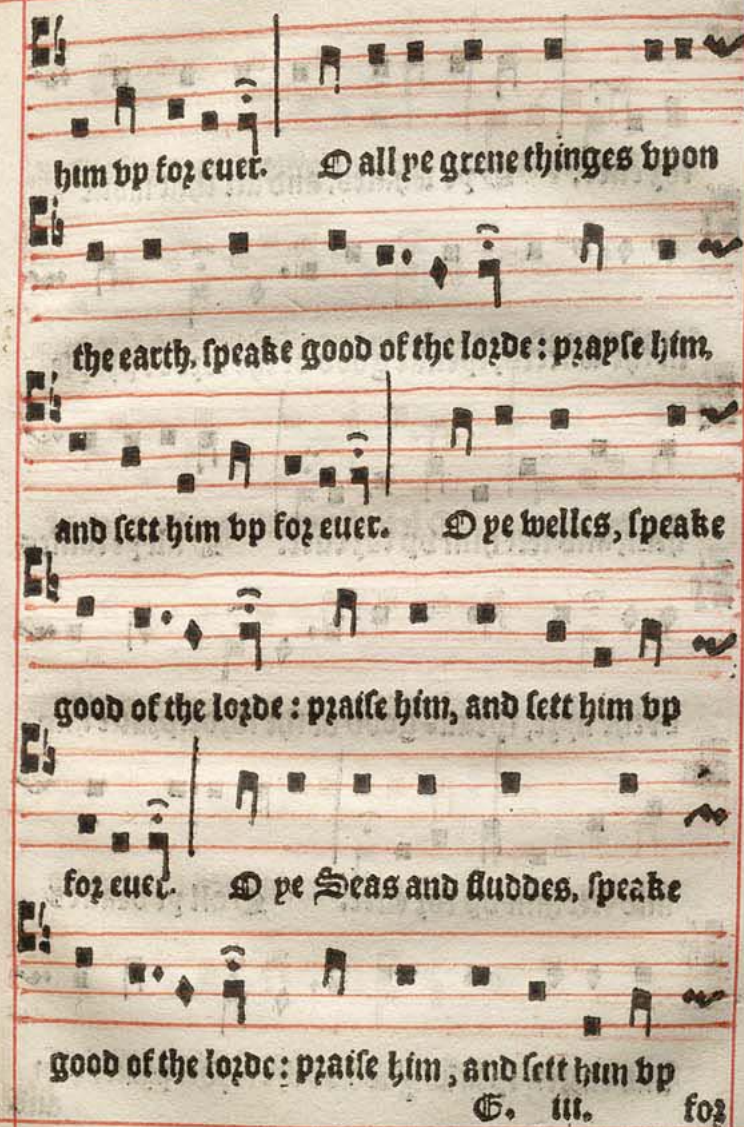 him vp for euer. O all ye grene thinges vpon
the earth, speake good of the lorde: prayse him,
and sett him vp for euer. O ye welles, speake
good of the lorde: praise him, and sett him vp
for euer. O ye Seas and fluddes, speake
good of the lorde: praise him, and sett him vp
G. iii. for